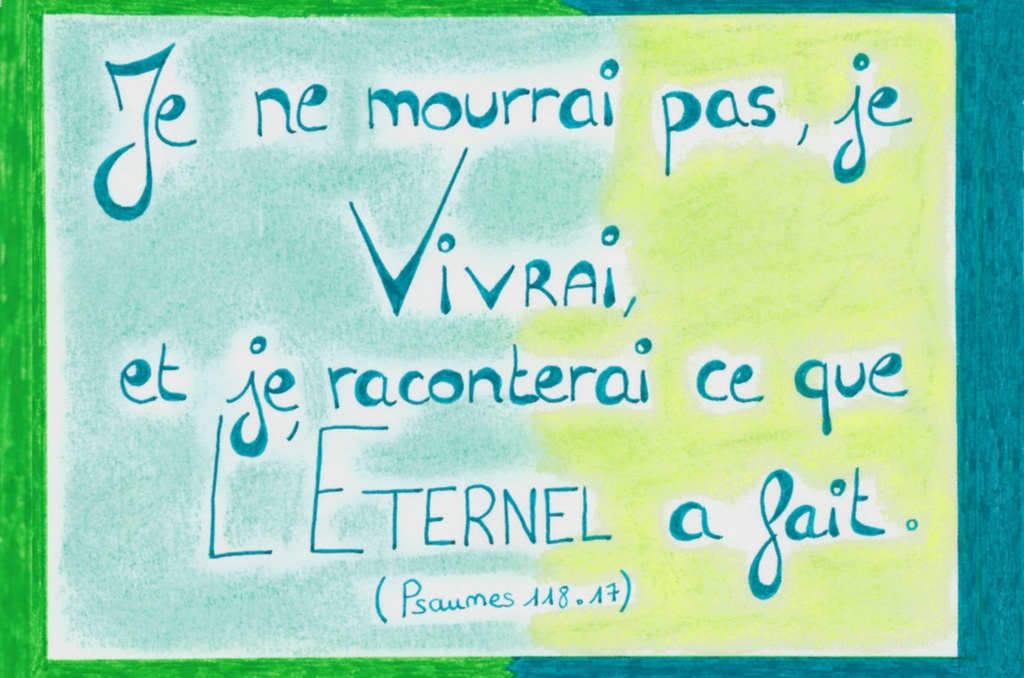 Je ne mourrai pas, je
VIVRAI,
et je raconterai ce que
L'ETERNEL a fait.
(Psaumes 118.17)